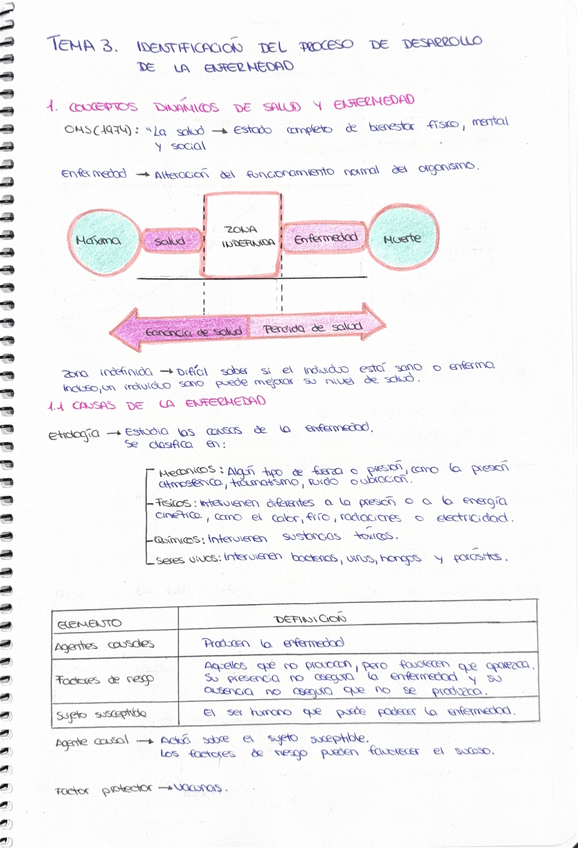 TEMA 3. IDENTIFICACIÓN DEL PROCESO DE DESARROLLO
DE LA ENFERMEDAD
1. CONCEPTOS DINÁMICOS DE SALUD Y ENFERMEDAD
OMS (1974): "La salud → Estado completo de bienestar físico, mental
y social
Enfermedad → Alteración del funcionamiento normal del organismo.
Máxima
Salud
ZONA
INDEFINIDA
Enfermedad
Muerte
Ganancia de salud
Pérdida de salud
Zona indefinida → Difícil saber si el individuo está sano o enfermo
Incluso, un individuo sano puede mejorar su nivel de salud.
1.1 CAUSAS DE LA ENFERMEDAD
Etiología → Estudia las causas de la enfermedad.
Se clasifica en:
Mecánicos: Algún tipo de fuerza o presión, como la presión
atmosférica, traumatismo, ruido o vibración.
Físicos: Intervienen diferentes a la presión o a la energía
cinética, como el calor, frío, radiaciones o electricidad.
Químicos: Intervienen sustancias tóxicas.
Seres vivos: Intervienen bacterias, virus, hongos y parásitos.
ELEMENTO
DEFINICIÓN
Agentes causales
Producen la enfermedad
Factores de riesgo
Aquellos que no provocan, pero favorecen que aparezca.
Su presencia no asegura la enfermedad y su
ausencia no asegura que no se produzca.
Sujeto susceptible
El ser humano que puede padecer la enfermedad.
Agente causal → Actúa sobre el sujeto suceptible.
Los factores de riesgo pueden favorecer el suceso.
Factor protector → Vacunas.